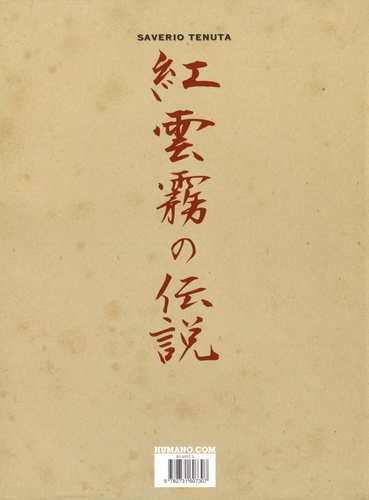 SAVERIO TENUTA
紅雲霧の伝説
HUMANO.COM
9 782731 607307